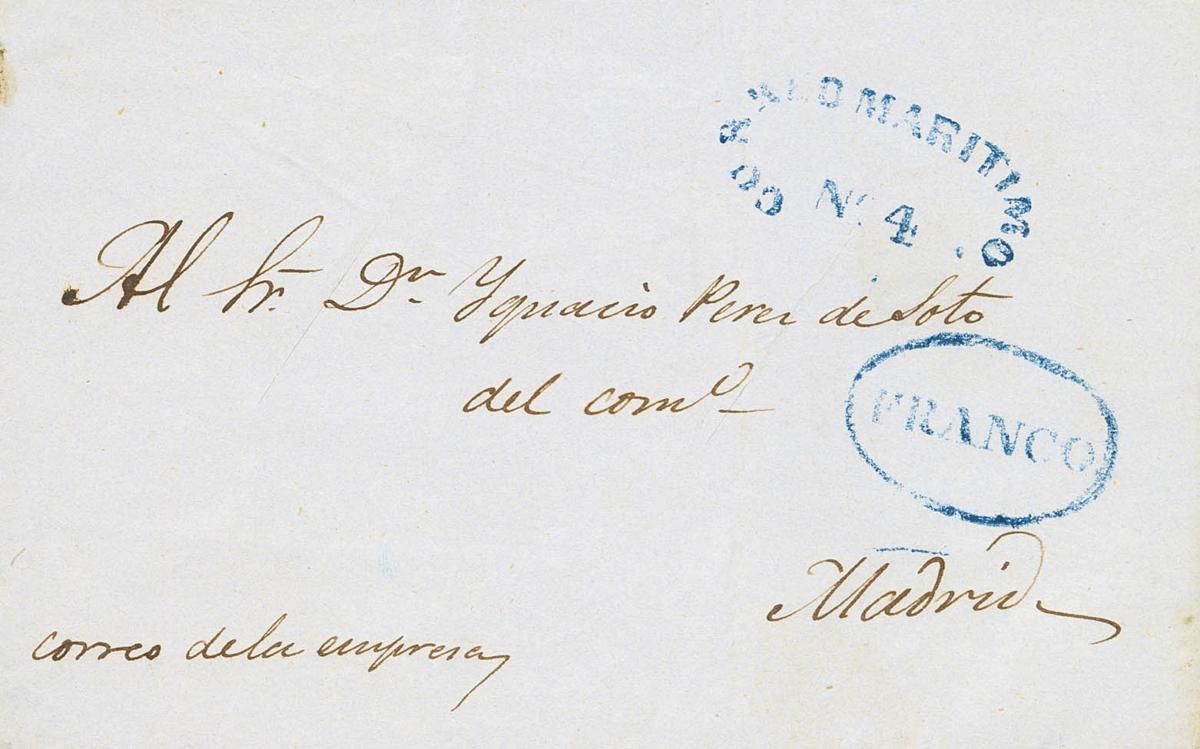 Nº 4
Al Sr. Dn. Ygnacio Perez de Soto
del comº
FRANCO
Madrid
correo de la empresa